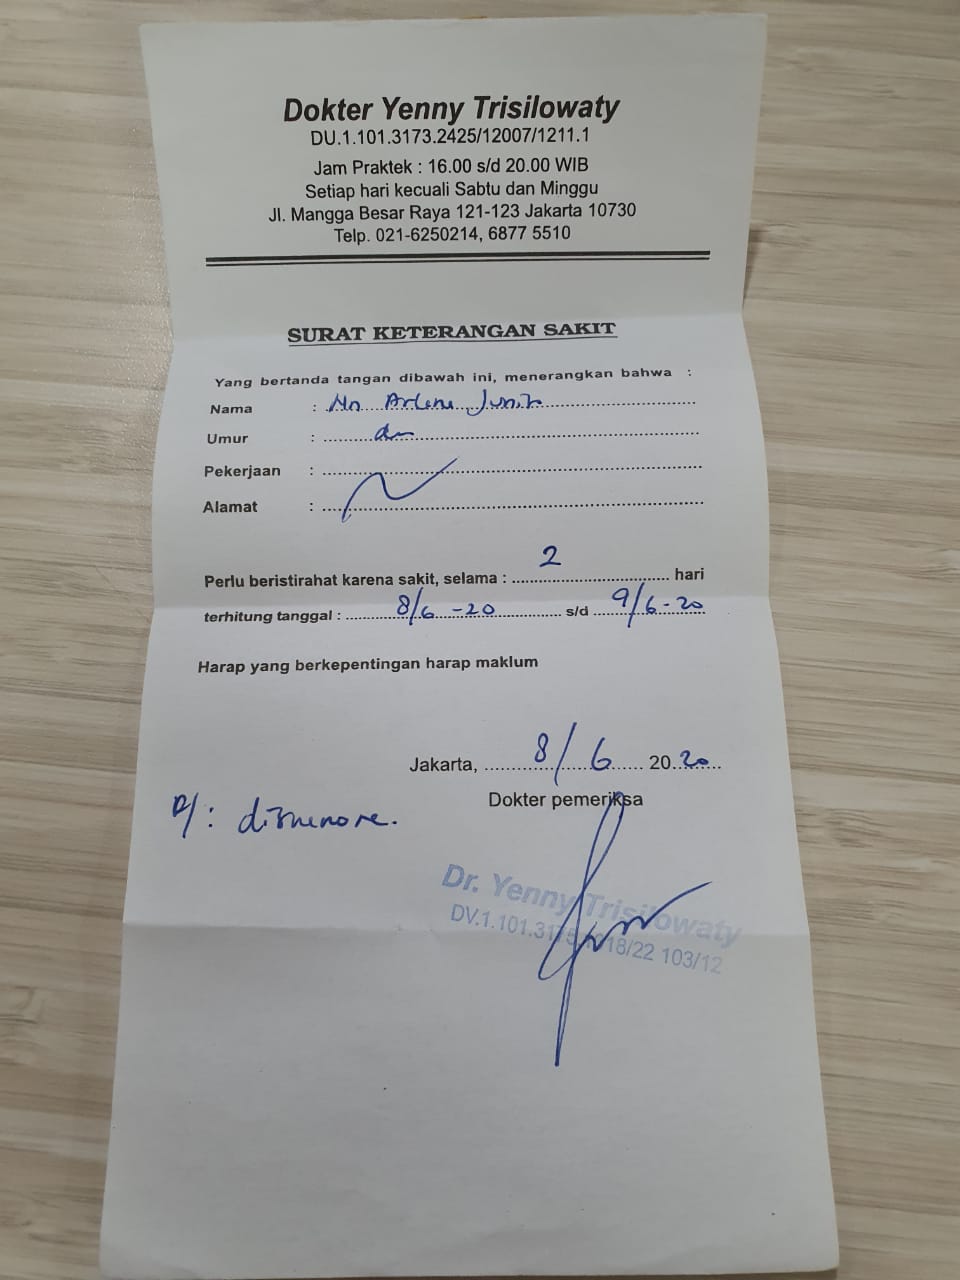 Dokter Yenny Trisilowaty
DU.1.101.3173.2425/12007/1211.1
Jam Praktek : 16.00 s/d 20.00 WIB
Setiap hari kecuali Sabtu dan Minggu
Jl. Mangga Besar Raya 121-123 Jakarta 10730
Telp. 021-6250214, 6877 5510
SURAT KETERANGAN SAKIT
Yang bertanda tangan dibawah ini, menerangkan bahwa :
Nama : Nn Arlene
Umur :
Pekerjaan :
Alamat :
Perlu beristirahat karena sakit, selama : 2 hari
terhitung tanggal : 8/6 - 20 s/d 9/6 - 20
Harap yang berkepentingan harap maklum
Jakarta, 8/6 2020
Dokter pemeriksa
D/: dismenore.
Dr. Yenny Trisilowaty
DV.1.101.3175 /22 103/12